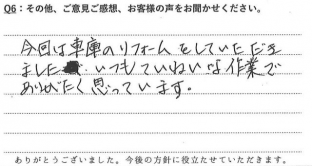 Q6：その他、ご意見ご感想、お客様の声をお聞かせください。
今回は車庫のリフォームをしていただき
ました いつもていねいな作業で
ありがたく思っています。
ありがとうございました。今後の方針に役立たせていただきます。